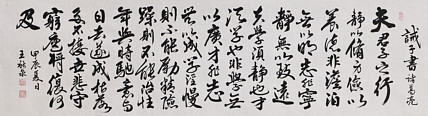 誡子書 諸葛亮
夫君子之行
靜以脩身儉以
養德非澹泊
無以明志非寧
靜無以致遠
夫學須靜也才
須學也非學無
以廣才非志
無以成學淫慢
則不能勵精險
躁則不能治性
年與時馳意與
日去遂成枯落
多不接世悲守
窮廬將復何
及
甲辰夏日
王